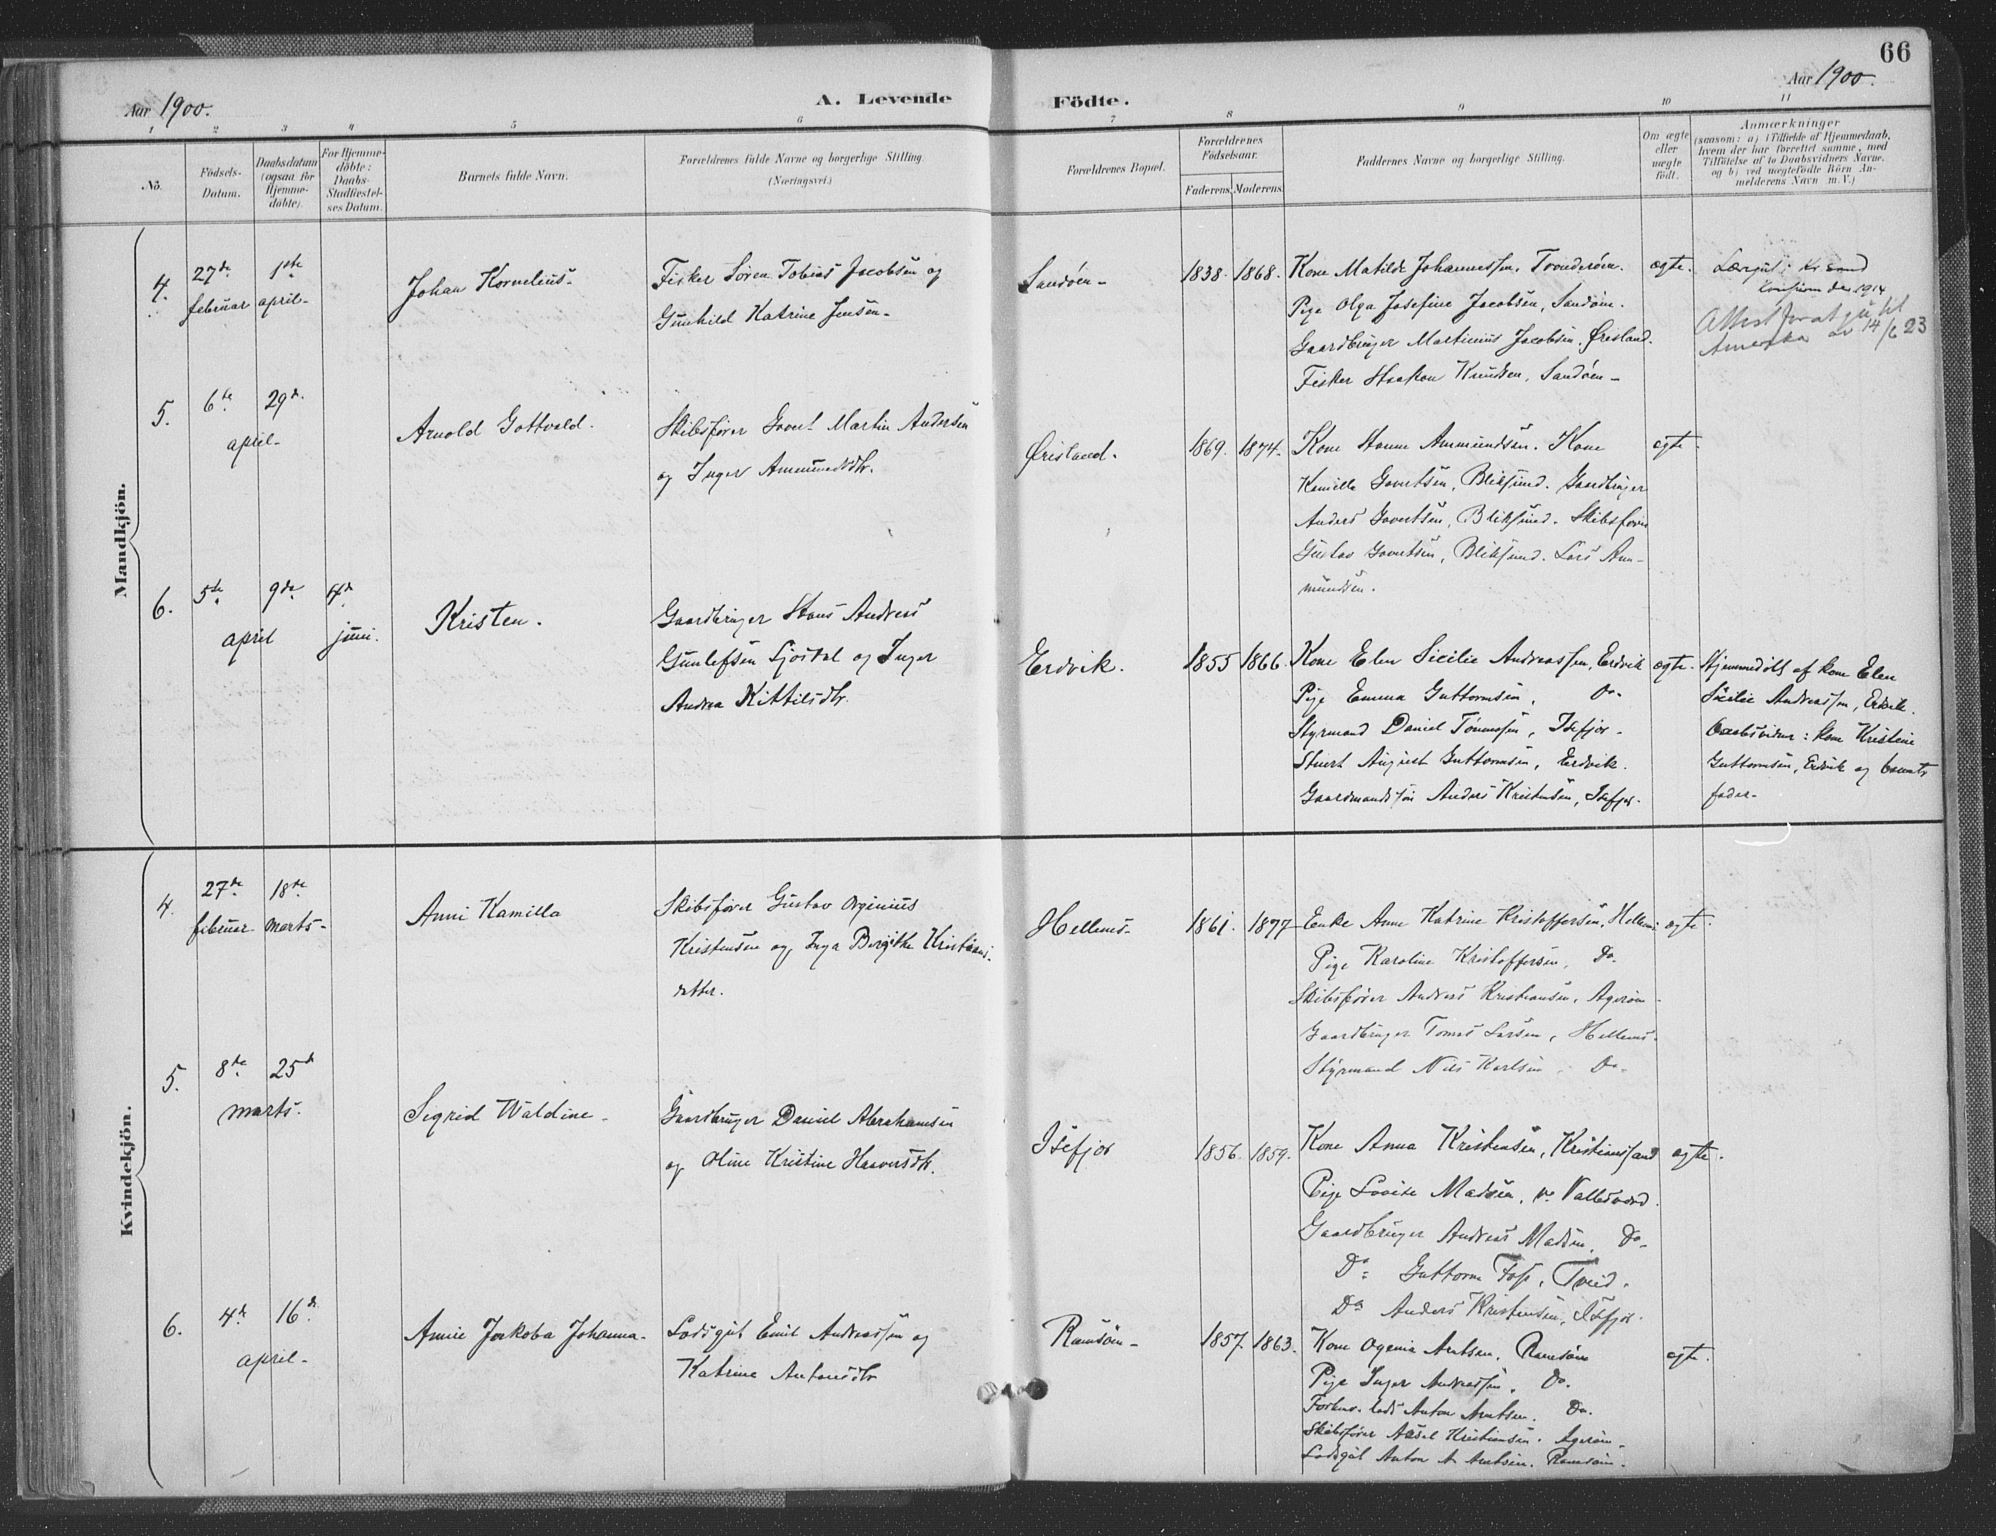 66
Aar 1900.
A. Levende Födte.
Aar 1900.
1 2 3 4 5 6 7 8 9 10 11
No.
Födsels-Datum.
Daabsdatum (ogsaa for Hjemme-döbte).
For Hjemme-döbte: Daabs-Stadfæstel-ses Datum.
Barnets fulde Navn.
Forældrenes fulde Navne og borgerlige Stilling.
(Næringsvei.)
Forældrenes Bopæl.
Forældrenes Födselsaar.
Faderens. Moderens.
Faddernes Navne og borgerlige Stilling.
Om ægte eller uægte födt.
Anmærkninger
(saasom: a) i Tilfælde af Hjemmedaab, hvem der har forrettet samme, med Tilföielse af to Daabsvidners Navne, og b) ved uægtefödte Börn An-melderens Navn m. V.)
Mandkjön.
4. 27de februar 1ste april-
Johan Kornelius-
Fisker Søren Tobias Jacobsen og
Gunhild Katrine Jensen-
Sandøen-
1838. 1868.
Kone Matilde Johannessen,
Pige Olga Josefine Jacobsen, Sandøen.
Gaardbruger Martinius Jacobsen, Ørisland.
Fisker Haakon Knudsen, Sandøen-
ægte.
1914
Attest for at til
Amerika 14/6 23
5. 6te 29de
april-
Arnold Gottvald.
Skibsfører Govert Martin Andersen
og Inger Ammundsdtr.
Ørisland.
1869. 1874.
Kone Hanne Ammundsen. Kone
Kamilla Govertsen, Bliksund. Gaardbruger
Anders Govertsen, Bliksund. Skibsfører
Gustav Govertsen, Bliksund. Lars Am-
mundsen.
ægte.
6. 5te 9de 4de
april juni.
Kristen.
Gaardbruger Hans Andreas
Gunlefsen og Inger
Andrea Kittilsdtr.
Erdvik.
1855 1866.
Kone Elen Sicilie Andreassen, Erdvik
Pige Emma Guttormsen, Do-
Styrmand Daniel Tønnessen, Isefjor.
Stuert August Guttormsen, Erdvik.
Gaardmandssøn Anders Kristensen, Isefjor.
ægte.
Hjemmedøbt af kone Elen
Sicilie Andreassen, Erdvik.
Daabsvidner: kone Kristine
Guttormsen, Erdvik og barnets
fader-
Kvindekjön.
4. 27de 18de
februar marts-
Anni Kamilla
Skibsfører Gustav
Kristensen og Inga Bergithe Kristians-
datter.
Hellems-
1861. 1877
Enke Anne Katrine Kristoffersen, Hellems
Pige Karoline Kristoffersen, Do.
Skibsfører Andreas Kristiansen, Agerøen-
Gaardbruger Tomas Larsen, Hellems.
Styrmand Nils Karlsen, Do-
ægte.
5. 8de 25de
marts.
Sigrid Waldine-
Gaardbruger Daniel Abrahamsen
og Oline Kristine Haaversdtr.
Isefjor
1856. 1859.
Kone Anna Kristensen, Kristianssand
Pige Lovise Madsen,
Gaardbruger Andreas Madsen, Do-
Do: Guttorm Foss, Tveid.
Do Anders Kristensen, Isefjor.
ægte.
6. 4de 16de
april-
Annie Jakoba Johanna-
Lodsgut Emil Andreassen og
Katrine Antonsdtr
Ramsøen-
1857. 1863.
Kone Ogenia Arntsen, Ramsøen
Pige Inger Andreassen, Do.
Forhenv. lods Anton Arntsen. Do.
Skibsfører Aksel Kristiansen. Agerøen-
Lodsgut Anton A. Arntsen. Ramsøen.
ægte.